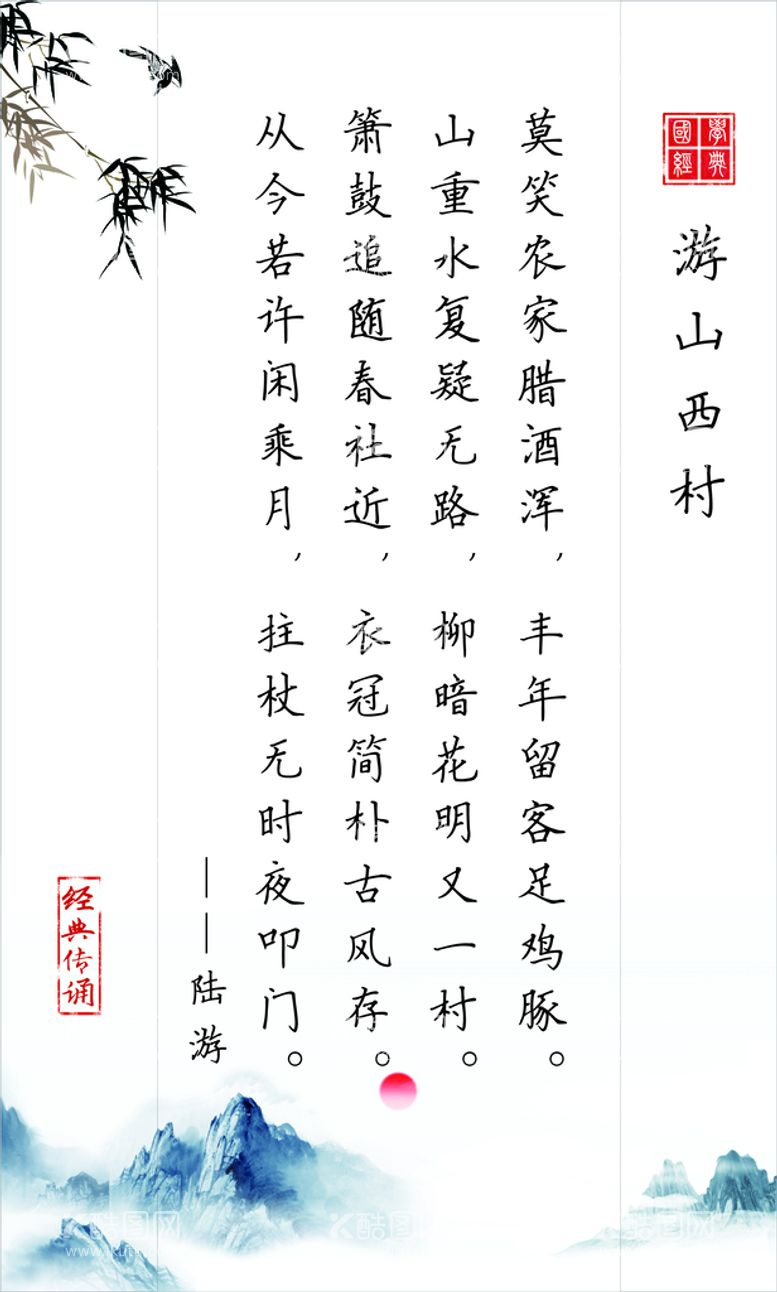 國學經典
游山西村
莫笑农家腊酒浑，丰年留客足鸡豚。
山重水复疑无路，柳暗花明又一村。
箫鼓追随春社近，衣冠简朴古风存。
从今若许闲乘月，拄杖无时夜叩门。
——陆游
经典传诵